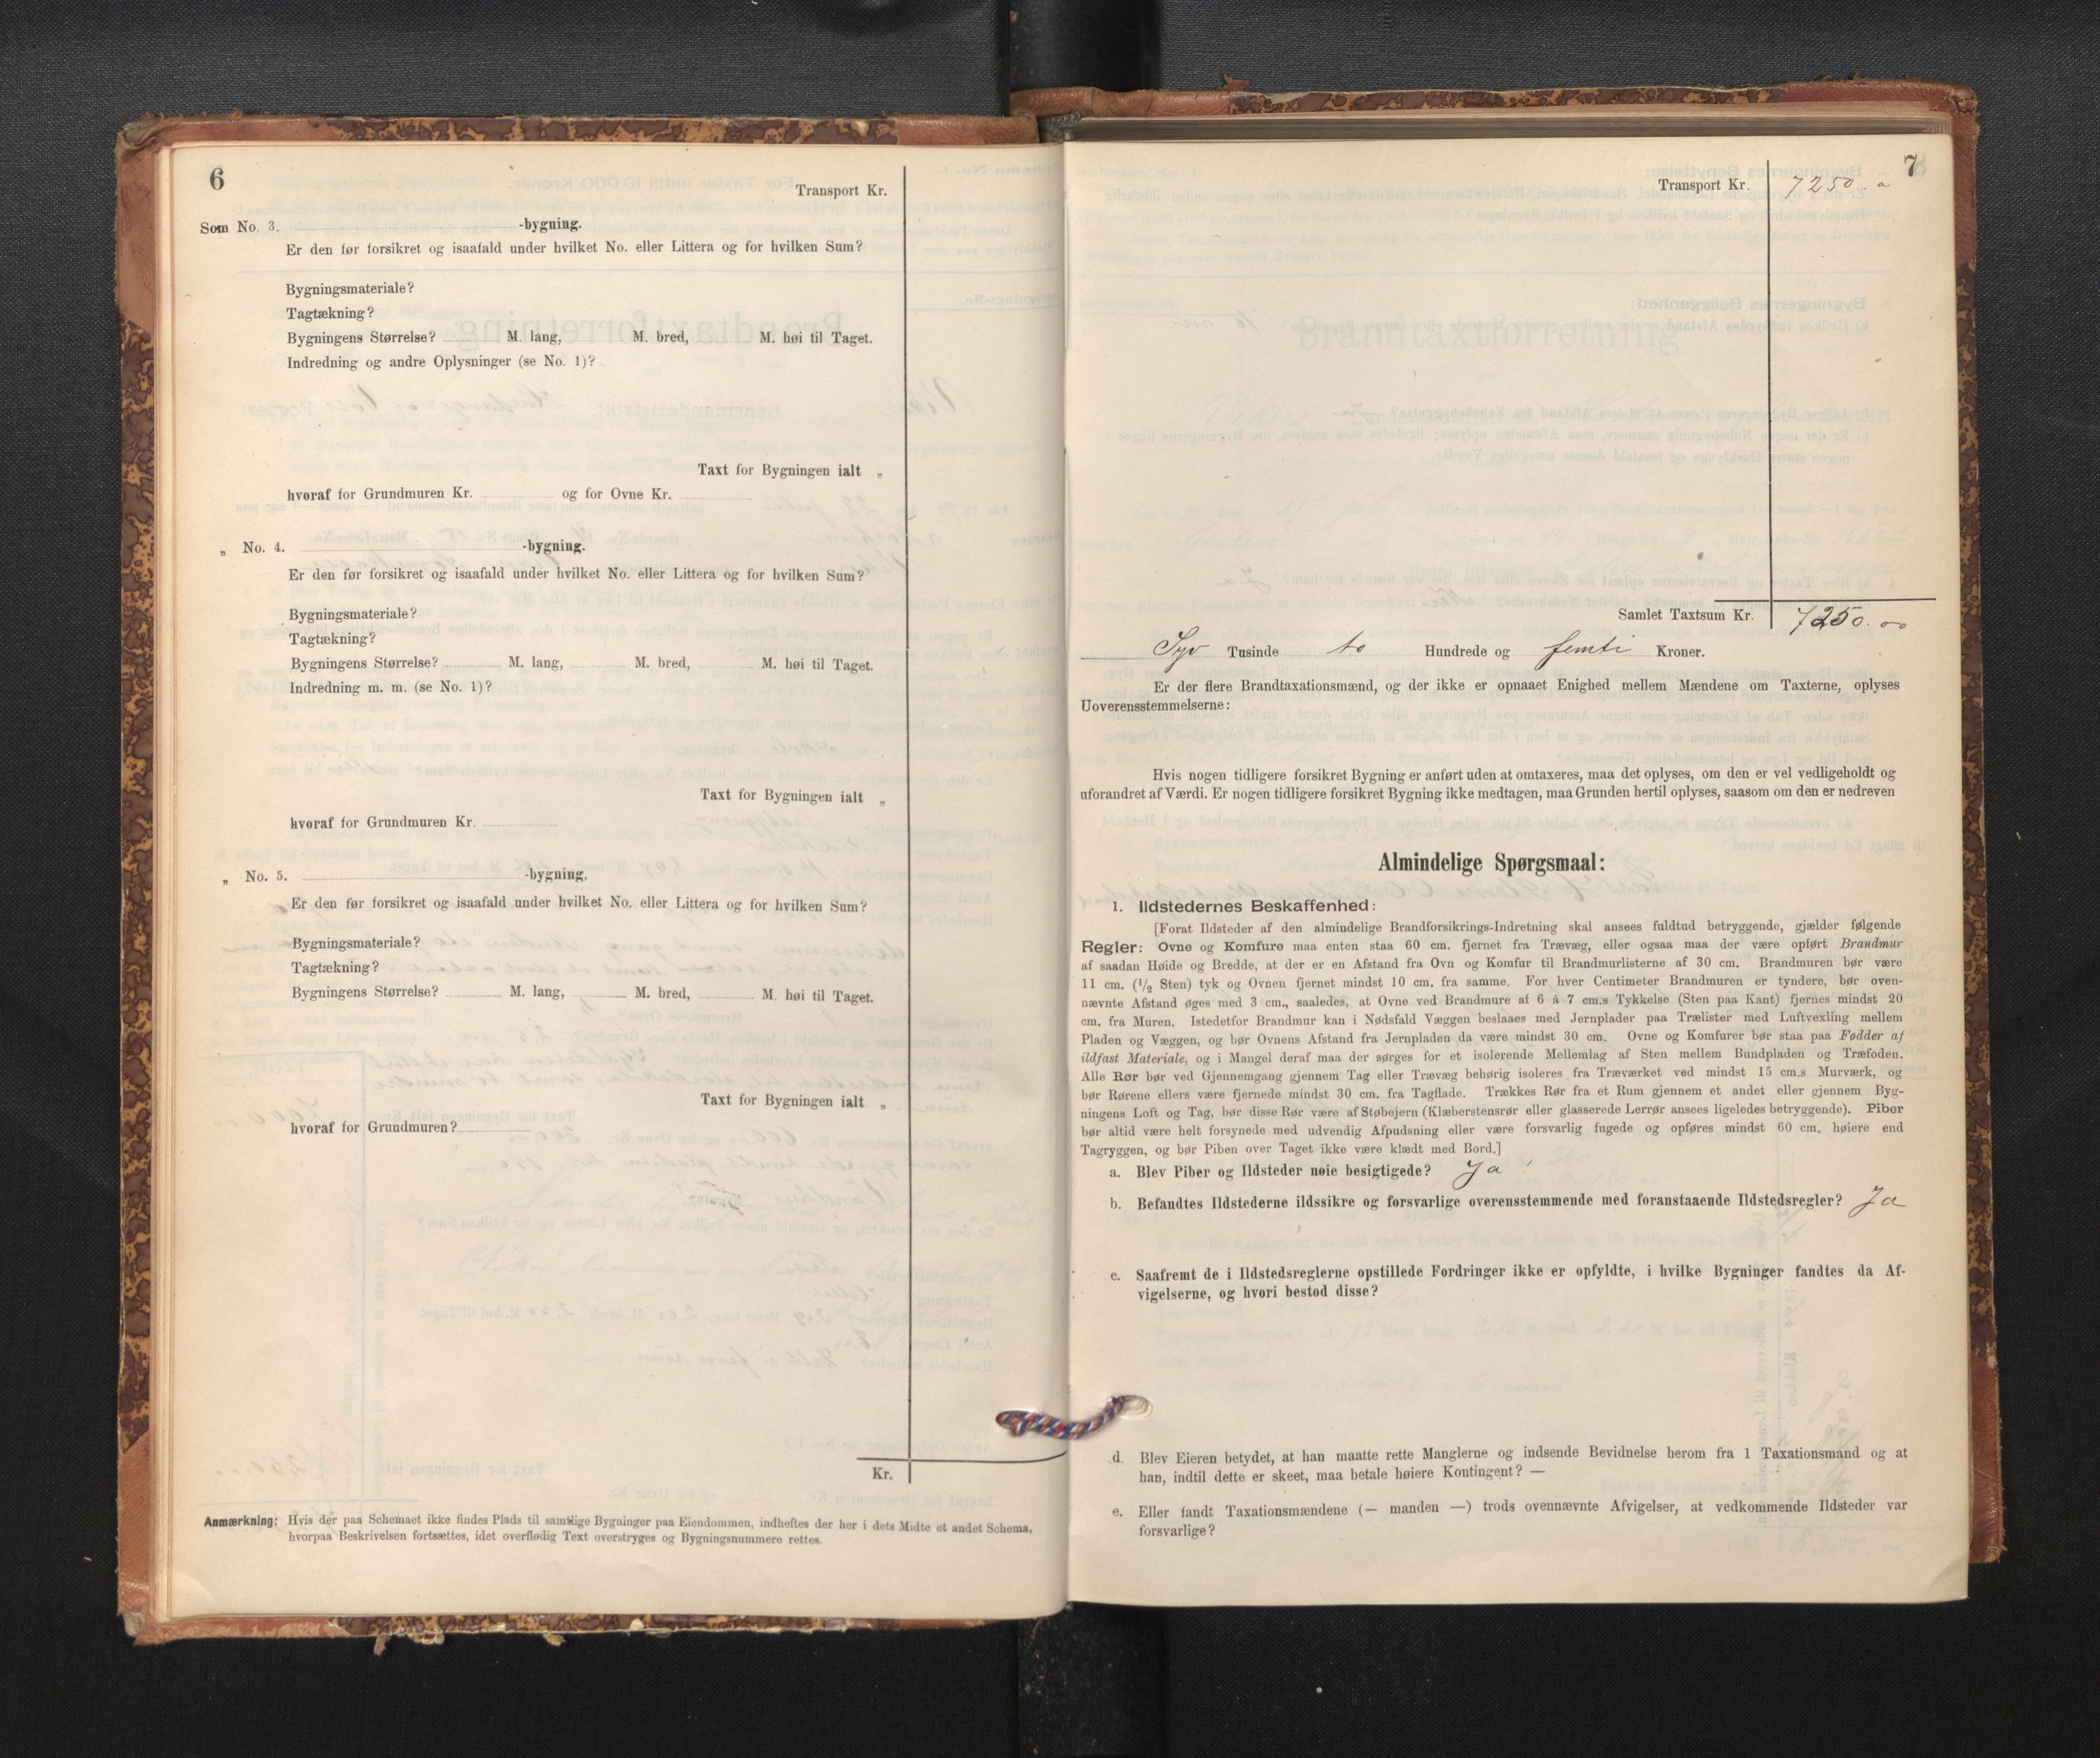 6
Transport Kr.
Som No. 3. -bygning.
Er den før forsikret og isaafald under hvilket No. eller Littera og for hvilken Sum?
Bygningsmateriale?
Tagtækning?
Bygningens Størrelse? M. lang, M. bred, M. høi til Taget.
Indredning og andre Oplysninger (se No. 1)?
Taxt for Bygningen ialt „
hvoraf for Grundmuren Kr. og for Ovne Kr.
„ No. 4. -bygning.
Er den før forsikret og isaafald under hvilket No. eller Littera og for hvilken Sum?
Bygningsmateriale?
Tagtækning?
Bygningens Størrelse? M. lang, M. bred, M. høi til Taget.
Indredning m. m. (se No. 1)?
Taxt for Bygningen ialt „
hvoraf for Grundmuren Kr.
„ No. 5. -bygning,
Er den før forsikret og isaafald under hvilket No. eller Littera og for hvilken Sum?
Bygningsmateriale?
Tagtækning?
Bygningens Størrelse? M. lang, M. bred, M. høi til Taget.
Taxt for Bygningen ialt „
hvoraf for Grundmuren?
Kr.
Anmærkning: Hvis der paa Schemaet ikke findes Plads til samtlige Bygninger paa Eiendommen, indheftes der her i dets Midte et andet Schema,
hvorpaa Beskrivelsen fortsættes, idet overflødig Text overstryges og Bygningsnummere rettes.
7
Transport Kr. 7250.
Samlet Taxtsum Kr. 7250.00
Syv Tusinde to Hundrede og femti Kroner.
Er der flere Brandtaxationsmænd, og der ikke er opnaaet Enighed mellem Mændene om Taxterne, oplyses
Uoverensstemmelserne:
Hvis nogen tidligere forsikret Bygning er anført uden at omtaxeres, maa det oplyses, om den er vel vedligeholdt og
uforandret af Værdi. Er nogen tidligere forsikret Bygning ikke medtagen, maa Grunden hertil oplyses, saasom om den er nedreven
Almindelige Spørgsmaal:
1. Ildstedernes Beskaffenhed:
[Forat Ildsteder af den almindelige Brandforsikrings-Indretning skal ansees fuldtud betryggende, gjælder følgende
Regler: Ovne og Komfure maa enten staa 60 cm. fjernet fra Trævæg, eller ogsaa maa der være opført Brandmur
af saadan Høide og Bredde, at der er en Afstand fra Ovn og Komfur til Brandmurlisterne af 30 cm. Brandmuren bør være
11 cm. (1/2 Sten) tyk og Ovnen fjernet mindst 10 cm. fra samme. For hver Centimeter Brandmuren er tyndere, bør oven-
nævnte Afstand øges med 3 cm., saaledes, at Ovne ved Brandmure af 6 à 7 cm.s Tykkelse (Sten paa Kant) fjernes mindst 20
cm. fra Muren. Istedetfor Brandmur kan i Nødsfald Væggen beslaaes med Jernplader paa Trælister med Luftvexling mellem
Pladen og Væggen, og bør Ovnens Afstand fra Jernpladen da være mindst 30 cm. Ovne og Komfurer bør staa paa Fødder af
ildfast Materiale, og i Mangel deraf maa der sørges for et isolerende Mellemlag af Sten mellem Bundpladen og Træfoden.
Alle Rør bør ved Gjennemgang gjennem Tag eller Trævæg behørig isoleres fra Træværket ved mindst 15 cm.s Murværk, og
bør Rørene ellers være fjernede mindst 30 cm. fra Tagflade. Trækkes Rør fra et Rum gjennem et andet eller gjennem Byg-
ningens Loft og Tag, bør disse Rør være af Støbejern (Klæberstensrør eller glasserede Lerrør ansees ligeledes betryggende). Piber
bør altid være helt forsynede med udvendig Afpudsning eller være forsvarlig fugede og opføres mindst 60 cm. høiere end
Tagryggen, og bør Piben over Taget ikke være klædt med Bord.]
a. Blev Piber og Ildsteder nøie besigtigede? Ja
b. Befandtes Ildstederne ildssikre og forsvarlige overensstemmende med foranstaaende Ildstedsregler? Ja
c. Saafremt de i Ildstedsreglerne opstillede Fordringer ikke er opfyldte, i hvilke Bygninger fandtes da Af-
vigelserne, og hvori bestod disse?
d. Blev Eieren betydet, at han maatte rette Manglerne og indsende Bevidnelse herom fra 1 Taxationsmand og at
han, indtil dette er skeet, maa betale høiere Kontingent? —
e. Eller fandt Taxationsmændene (— manden —) trods ovennævnte Afvigelser, at vedkommende Ildsteder var
forsvarlige?